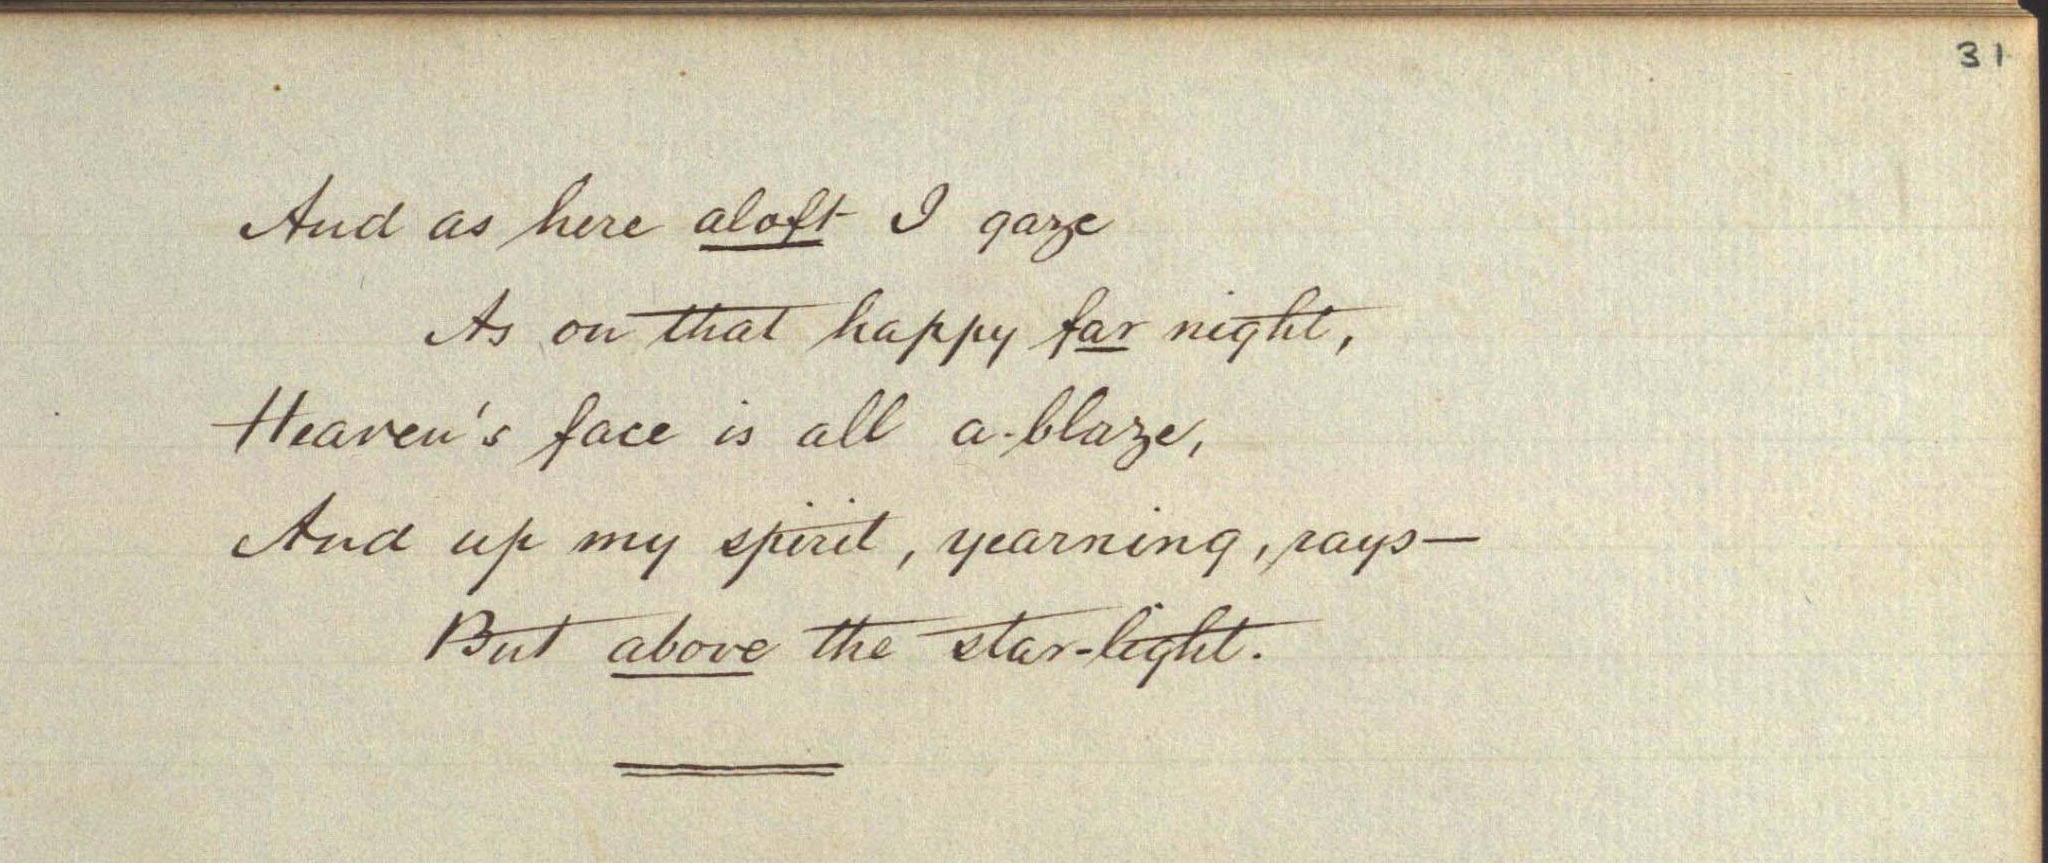 31
And as here aloft I gaze
As on that happy far night,
Heaven's face is all a-blaze,
And up my spirit, yearning, rays—
But above the star-light.